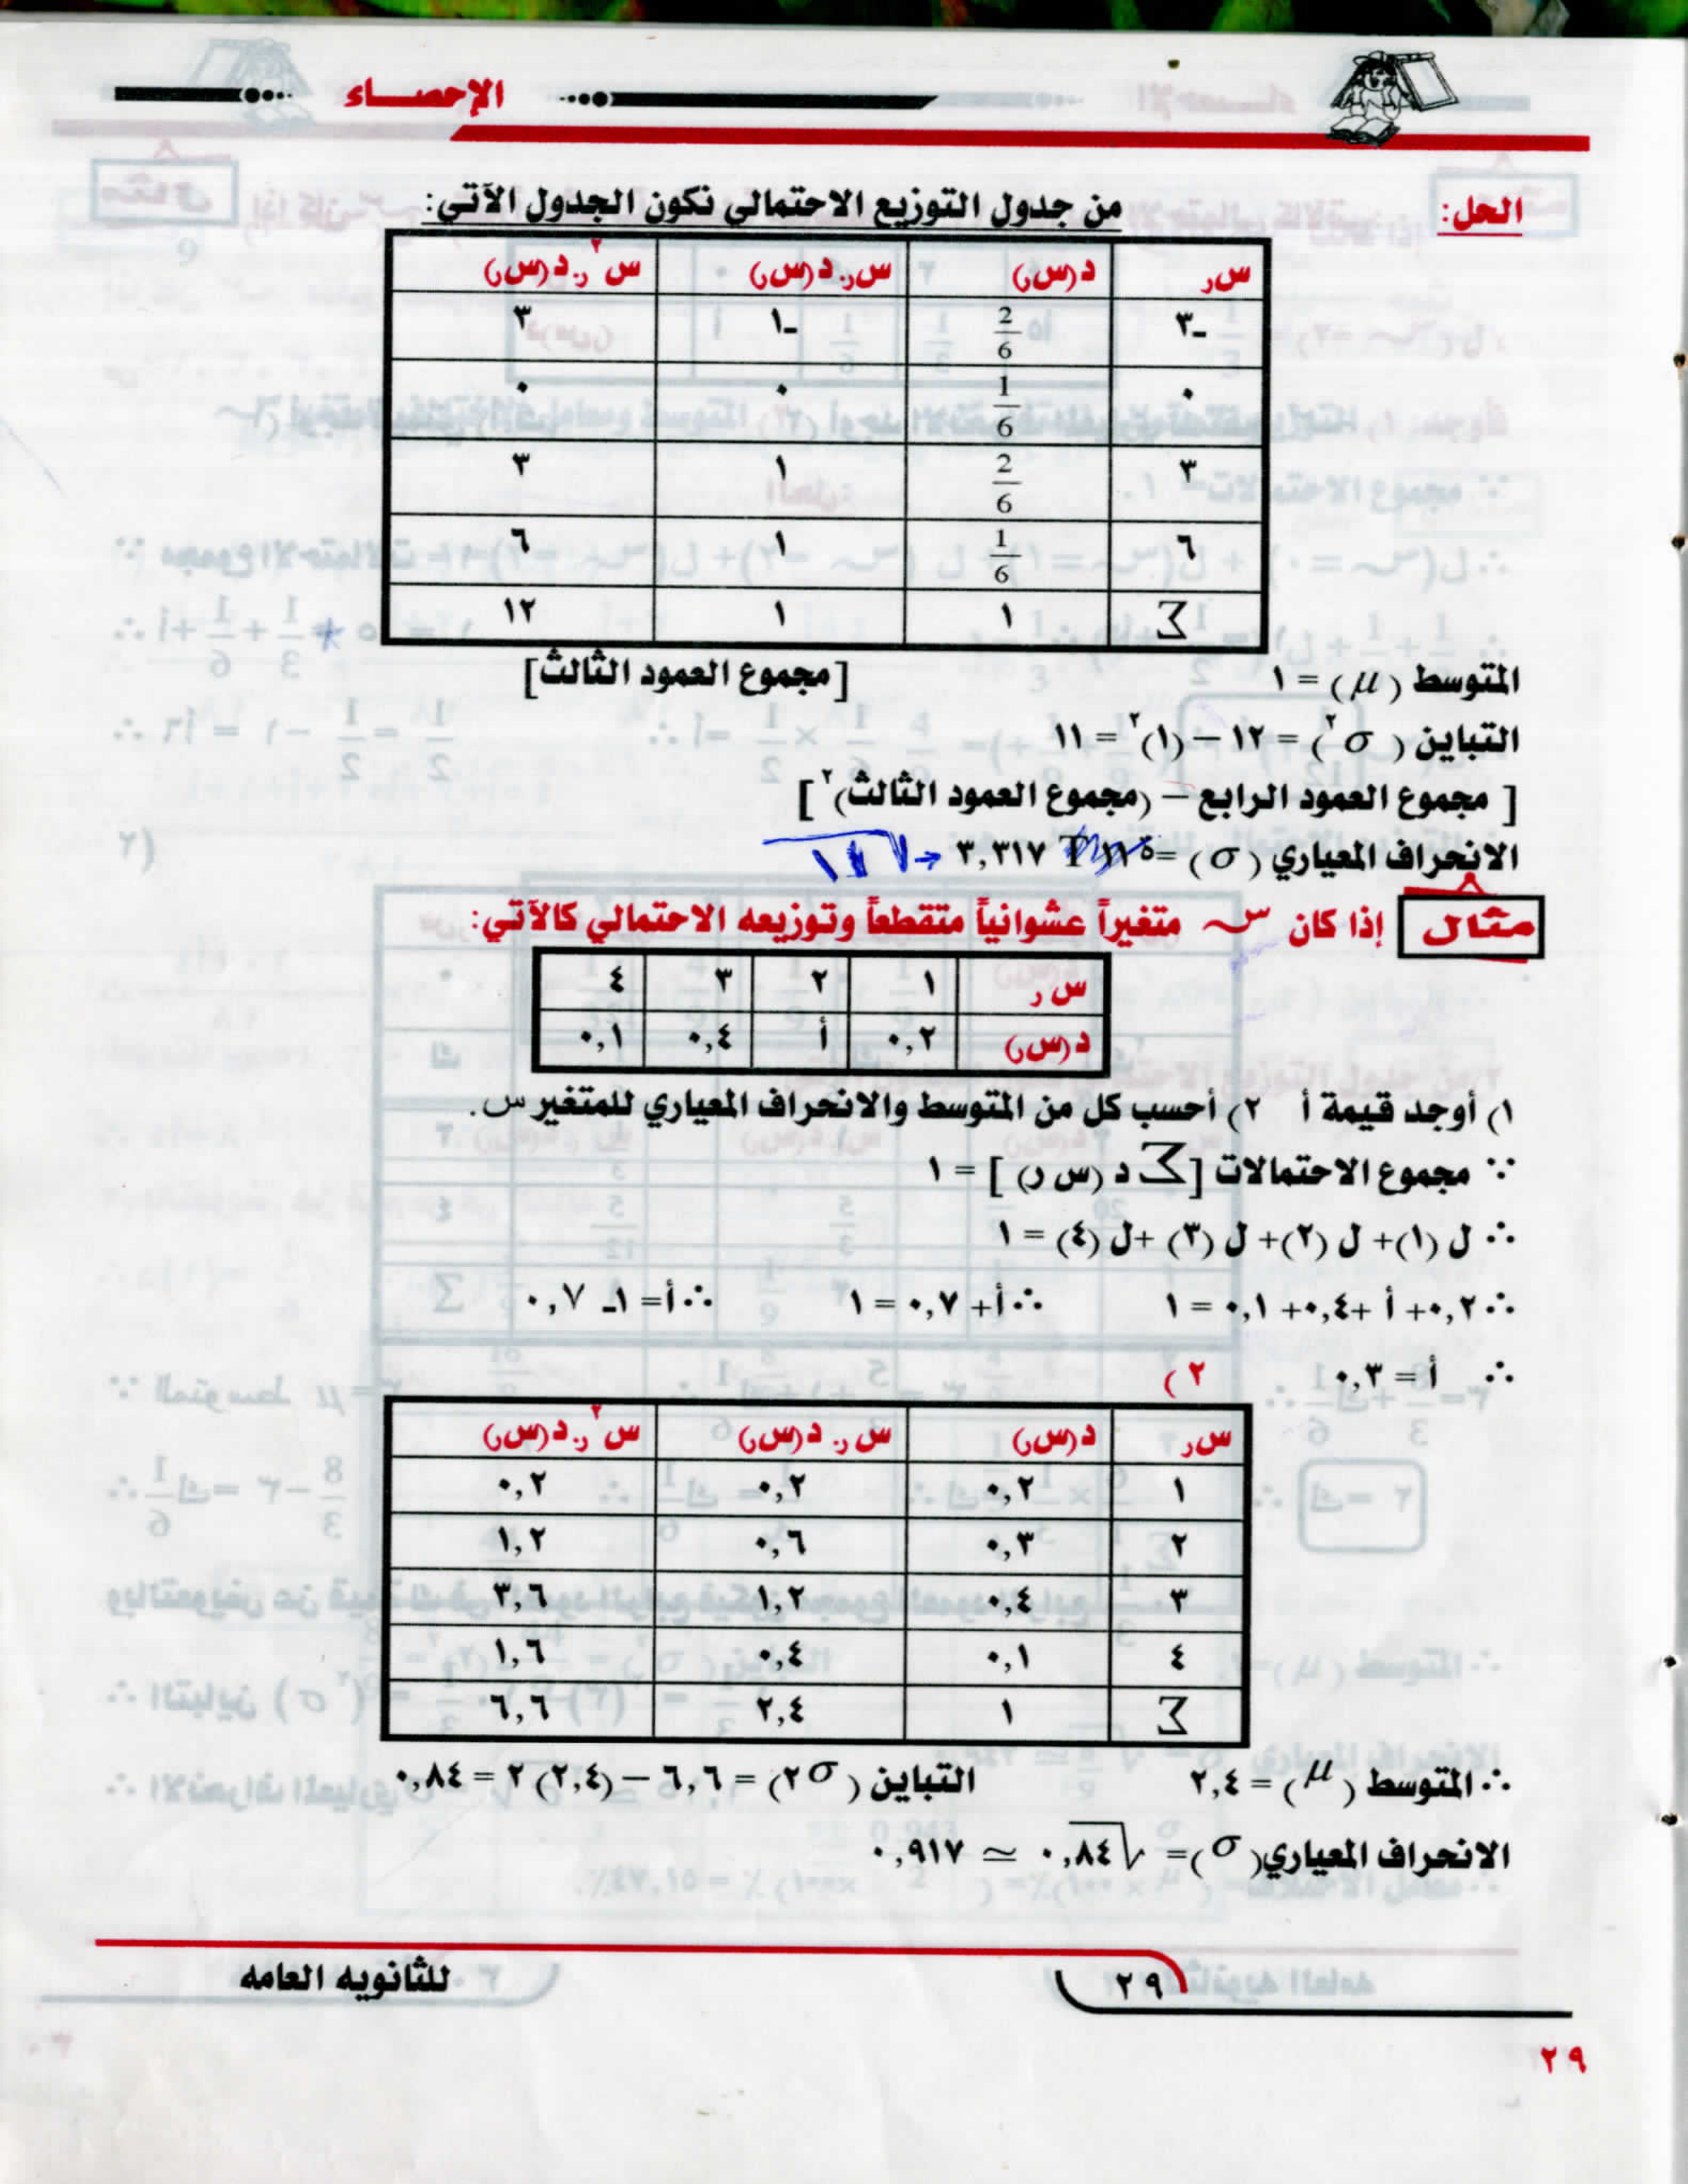 الإحصاء
الحل: من جدول التوزيع الاحتمالي نكون الجدول الآتي:
س ر | د(س ر) | س ر. د(س ر) | س٢ ر. د(س ر)
-٣ | 2/6 | -١ | ٣
٠ | 1/6 | ٠ | ٠
٣ | 2/6 | ١ | ٣
٦ | 1/6 | ١ | ٦
Σ | ١ | ١ | ١٢
المتوسط (μ) = ١ [مجموع العمود الثالث]
التباين (σ٢) = ١٢ – (١)٢ = ١١
[مجموع العمود الرابع – (مجموع العمود الثالث)٢]
الانحراف المعياري (σ) = ٣,٣١٧ ← √١١
مثال إذا كان س متغيراً عشوانياً متقطعاً وتوزيعه الاحتمالي كالآتي:
س ر | ١ | ٢ | ٣ | ٤
د(س ر) | ٠,٢ | أ | ٠,٤ | ٠,١
١) أوجد قيمة أ ٢) أحسب كل من المتوسط والانحراف المعياري للمتغير س.
∵ مجموع الاحتمالات [Σ د (س ر)] = ١
∴ ل (١)+ ل (٢)+ ل (٣) +ل (٤) = ١
∴ ٠,٢+ أ +٠,٤+ ٠,١ = ١ ∴أ+ ٠,٧ = ١ ∴أ= ١- ٠,٧
∴ أ = ٠,٣ ٢ )
س ر | د(س ر) | س ر. د(س ر) | س٢ ر. د(س ر)
١ | ٠,٢ | ٠,٢ | ٠,٢
٢ | ٠,٣ | ٠,٦ | ١,٢
٣ | ٠,٤ | ١,٢ | ٣,٦
٤ | ٠,١ | ٠,٤ | ١,٦
Σ | ١ | ٢,٤ | ٦,٦
∴ المتوسط (μ) = ٢,٤ التباين (σ٢) = ٦,٦ – (٢,٤)٢ = ٠,٨٤
الانحراف المعياري(σ)= √٠,٨٤ ≃ ٠,٩١٧
٢٩ للثانويه العامه
٢٩